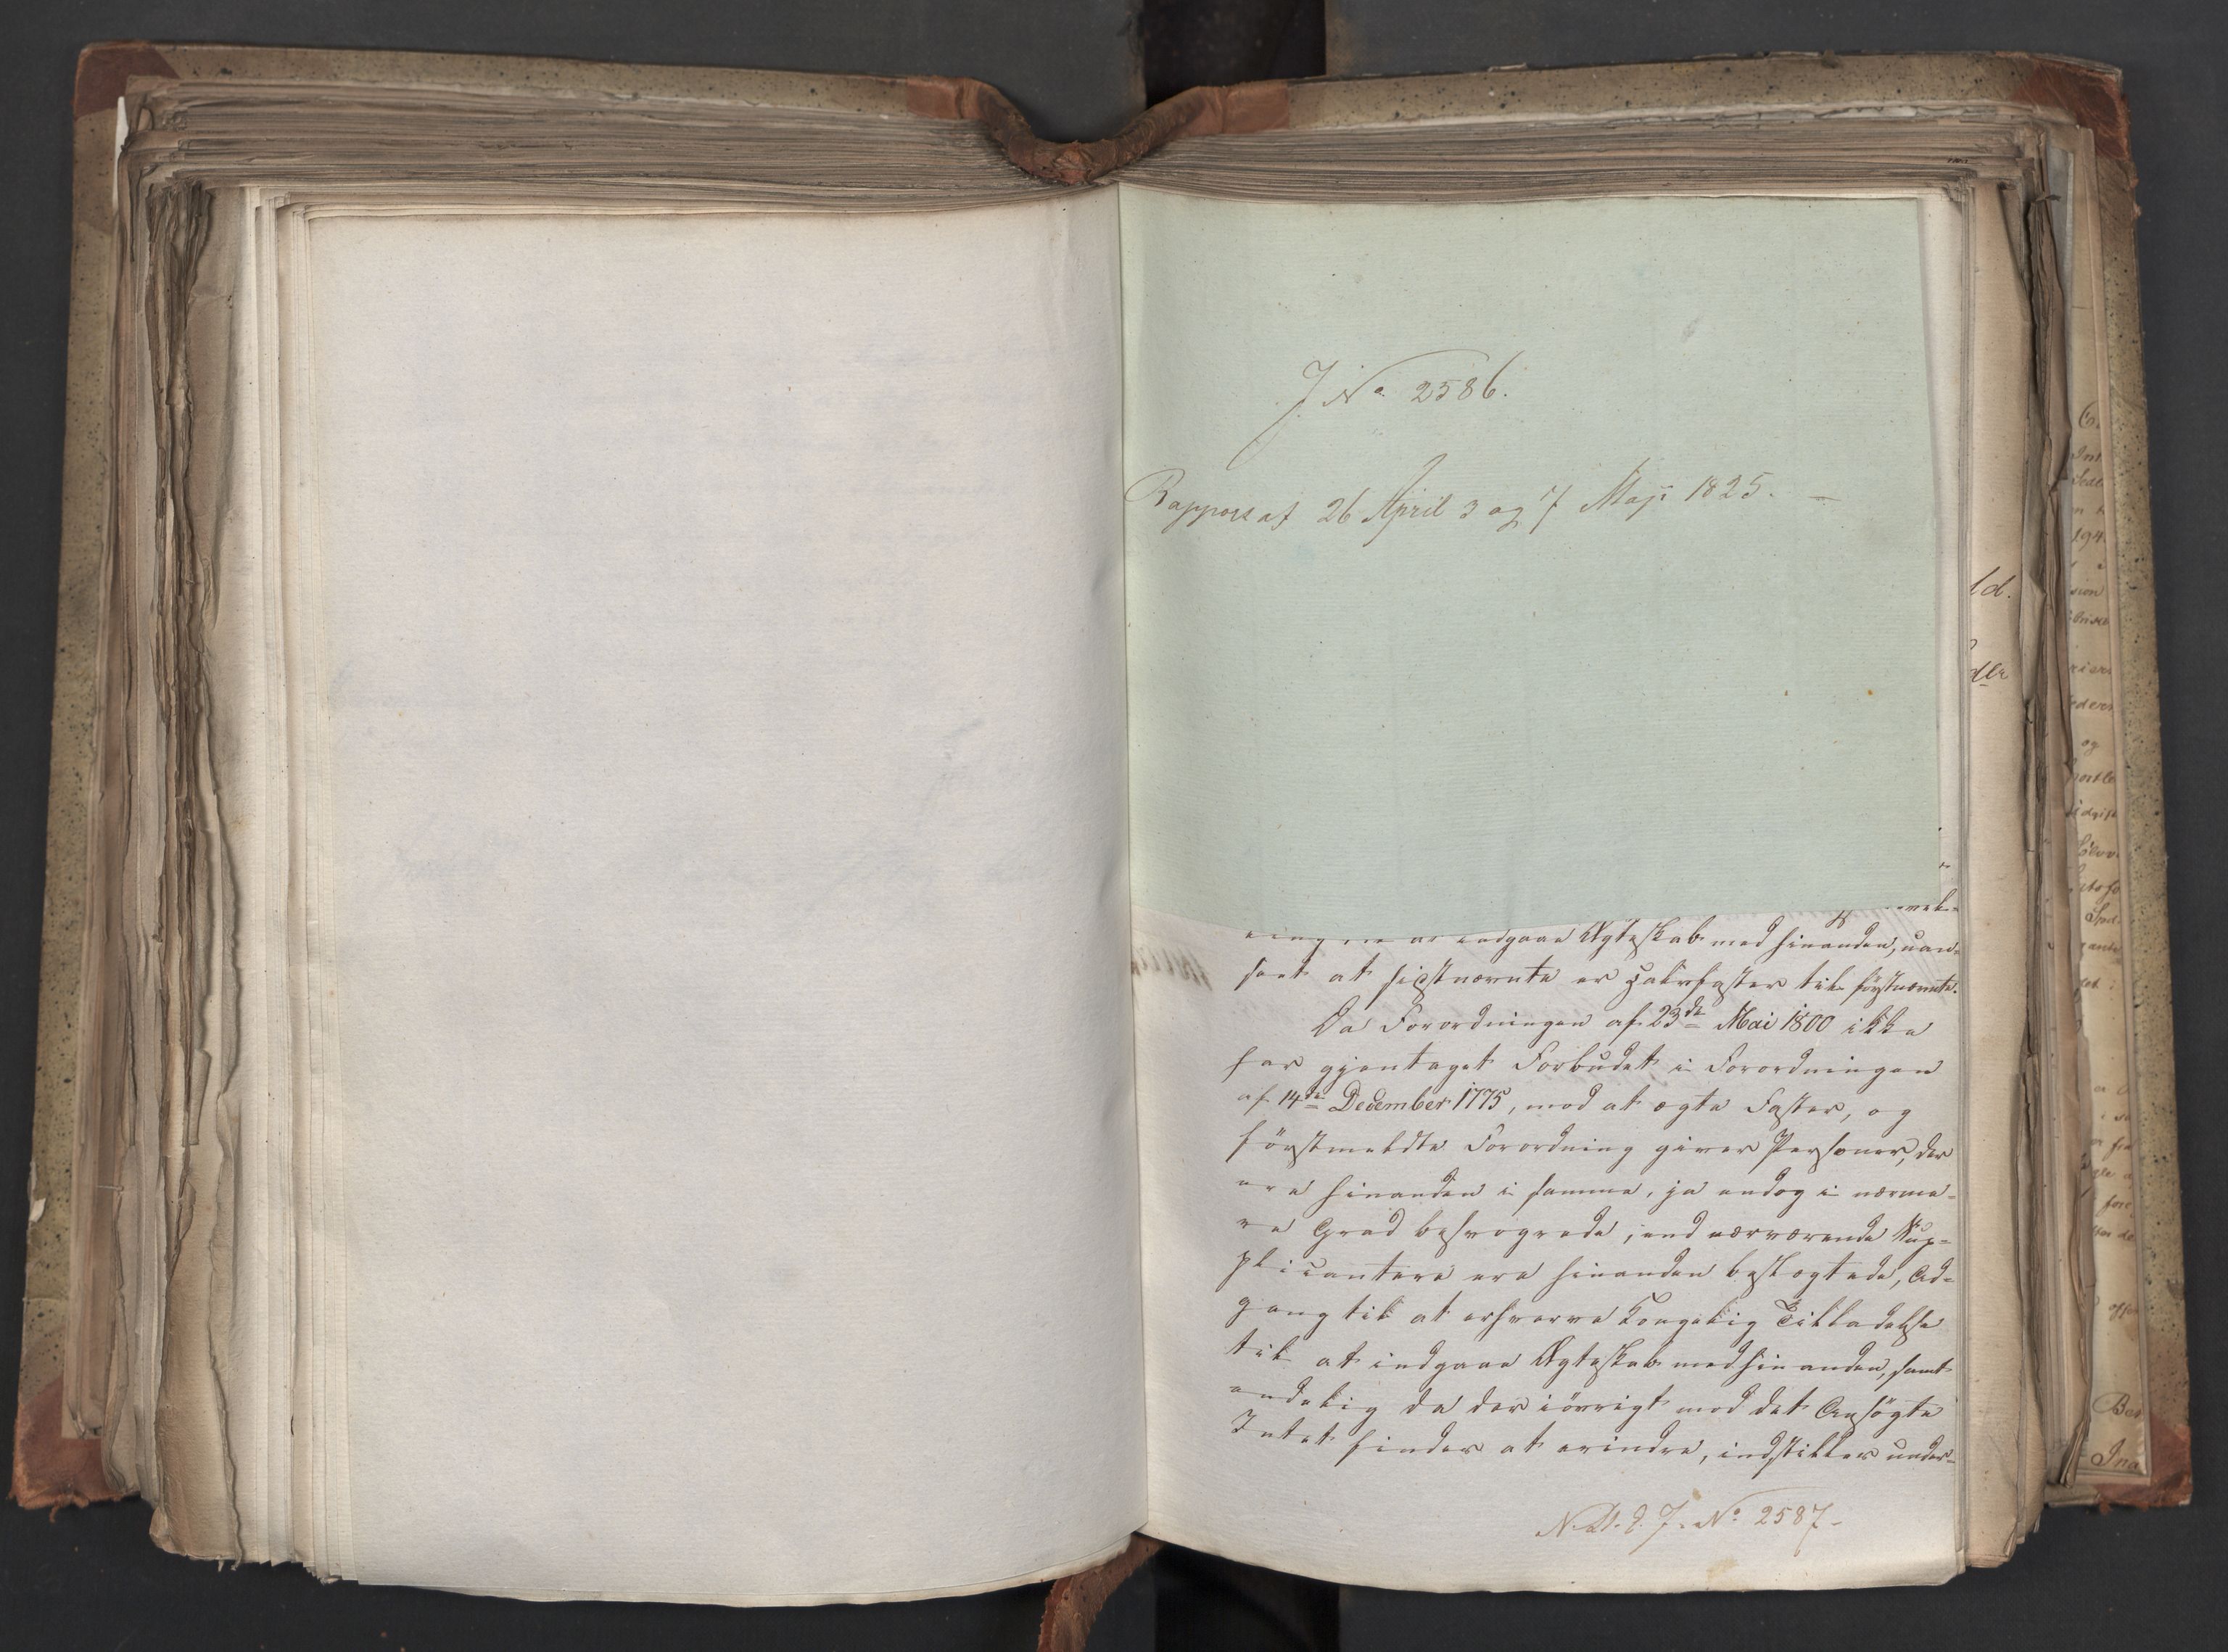 J. No 2586.
Rapport af 26 April 3 og 7 Maji 1825. —
indgaae Ægteskab med hinanden, uan-
seet at sidstnævnte er Halvfaster til førstnævnte.
Da Forordningen af 23de Mai 1800 ikke
har gjentaget Forbudet i Forordningen
af 14de December 1775, mod at ægte Faster, og
førstmeldte Forordning giver Personer, der
ere hinanden i samme, ja endog i nærme-
re Grad besvogrede, end nærværende Sup-
plicantere ere hinanden beslægtede, Ad-
gang til at erhverve Kongelig Tilladelse
til at indgaae Ægteskab med hinanden, samt
endelig da der iøvrigt mod det Ansøgte
Intet findes at erindre, indstilles under-
J. No 2587-